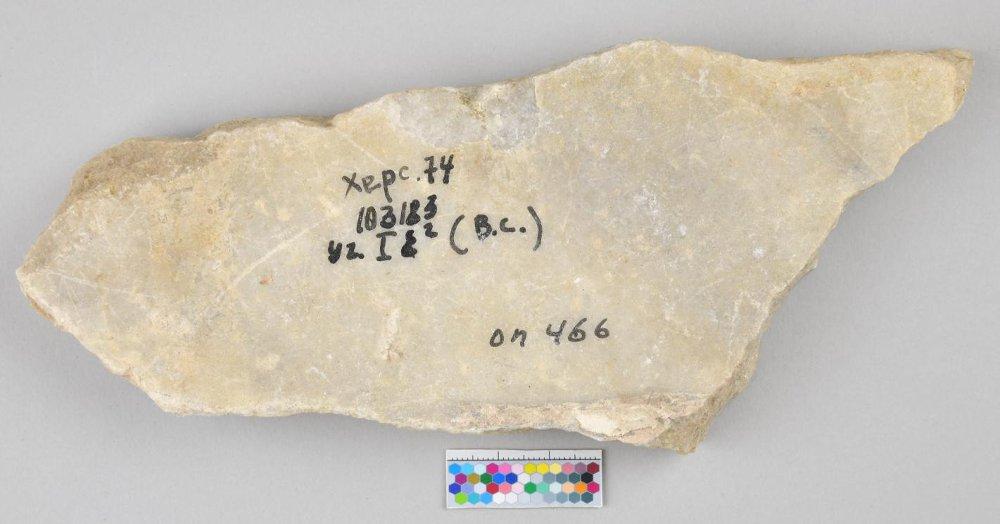 Херс. 74
103183
уг. I б² (В.С.)
оп 466